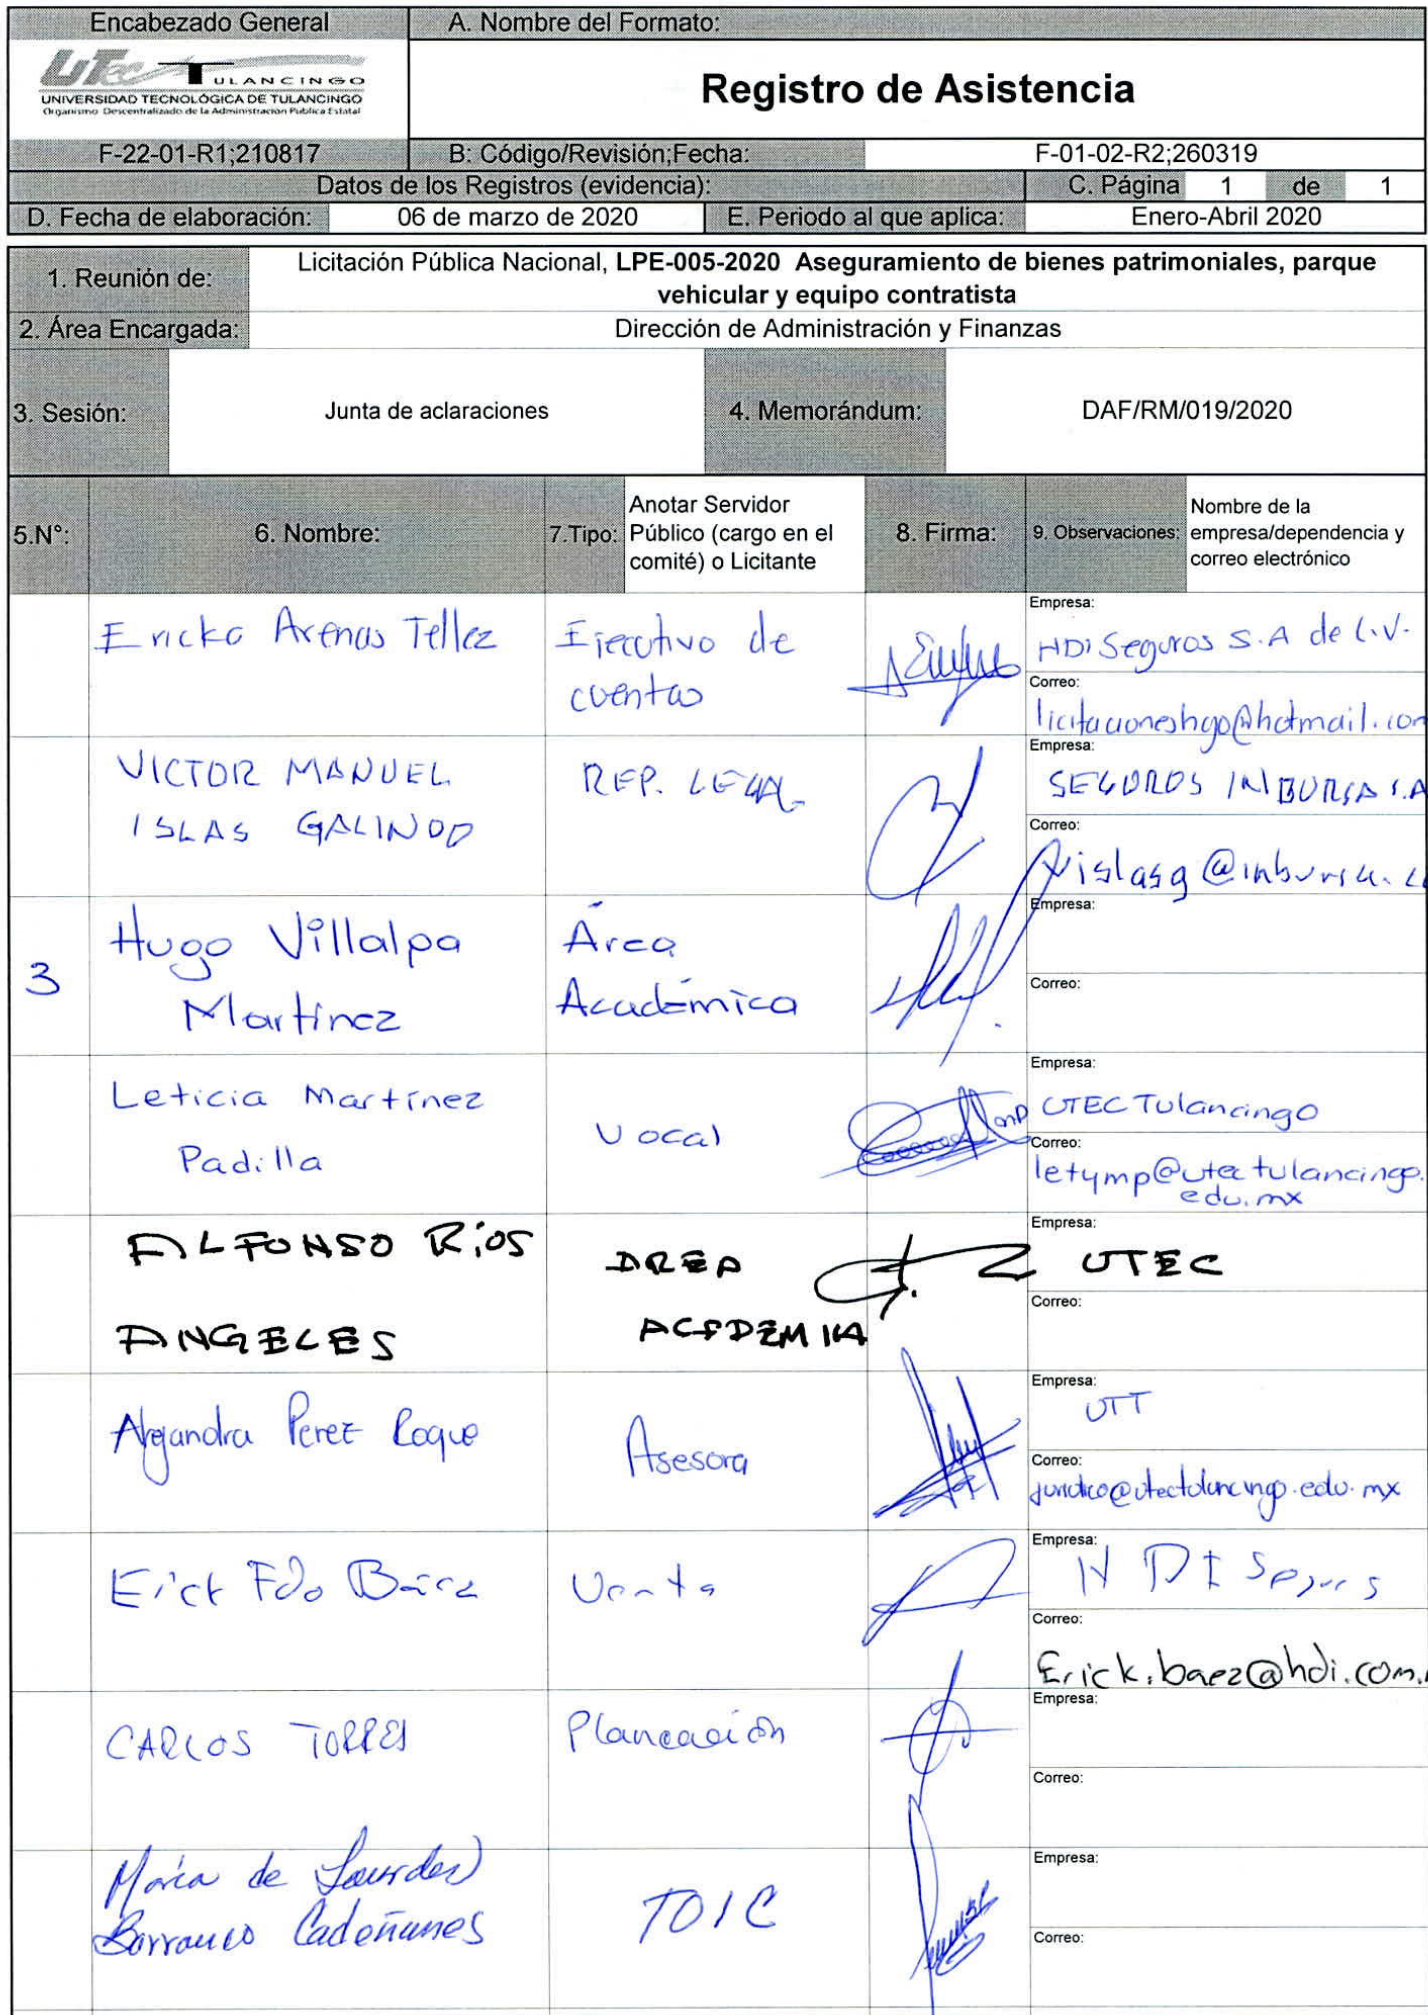 Encabezado General
A. Nombre del Formato:
UTec TULANCINGO
UNIVERSIDAD TECNOLÓGICA DE TULANCINGO
Organismo Descentralizado de la Administración Pública Estatal
Registro de Asistencia
F-22-01-R1;210817
B: Código/Revisión;Fecha:
F-01-02-R2;260319
Datos de los Registros (evidencia):
C. Página 1 de 1
D. Fecha de elaboración:
06 de marzo de 2020
E. Periodo al que aplica:
Enero-Abril 2020
1. Reunión de:
Licitación Pública Nacional, LPE-005-2020 Aseguramiento de bienes patrimoniales, parque
vehicular y equipo contratista
2. Área Encargada:
Dirección de Administración y Finanzas
3. Sesión:
Junta de aclaraciones
4. Memorándum:
DAF/RM/019/2020
5.N°:
6. Nombre:
7.Tipo:
Anotar Servidor
Público (cargo en el
comité) o Licitante
8. Firma:
9. Observaciones:
Nombre de la
empresa/dependencia y
correo electrónico
Ericka Arenas Tellez
Ejecutivo de
cuentas
Empresa:
HDI Seguros S.A de C.V.
Correo:
licitacioneshgo@hotmail.com
VICTOR MANUEL
ISLAS GALINDO
REP. LEGAL
Empresa:
SEGUROS INBURSA S.A
Correo:
vislasg@inbursa.c
3
Hugo Villalpa
Martínez
Área
Académica
Empresa:
Correo:
Leticia Martínez
Padilla
Vocal
Empresa:
UTEC Tulancingo
Correo:
letymp@utectulancingo.
edu.mx
ALFONSO Ríos
ANGELES
AREA
ACADEMIA
Empresa:
UTEC
Correo:
Alejandra Perez Roque
Asesora
Empresa:
UTT
Correo:
juridico@utectulancingo.edu.mx
Erick Fdo Báez
Venta
Empresa:
HDI Seguros
Correo:
Erick.baez@hdi.com.
CARLOS TORRES
Planeación
Empresa:
Correo:
María de Lourdes
Barranco Cadeñanes
TOIC
Empresa:
Correo: